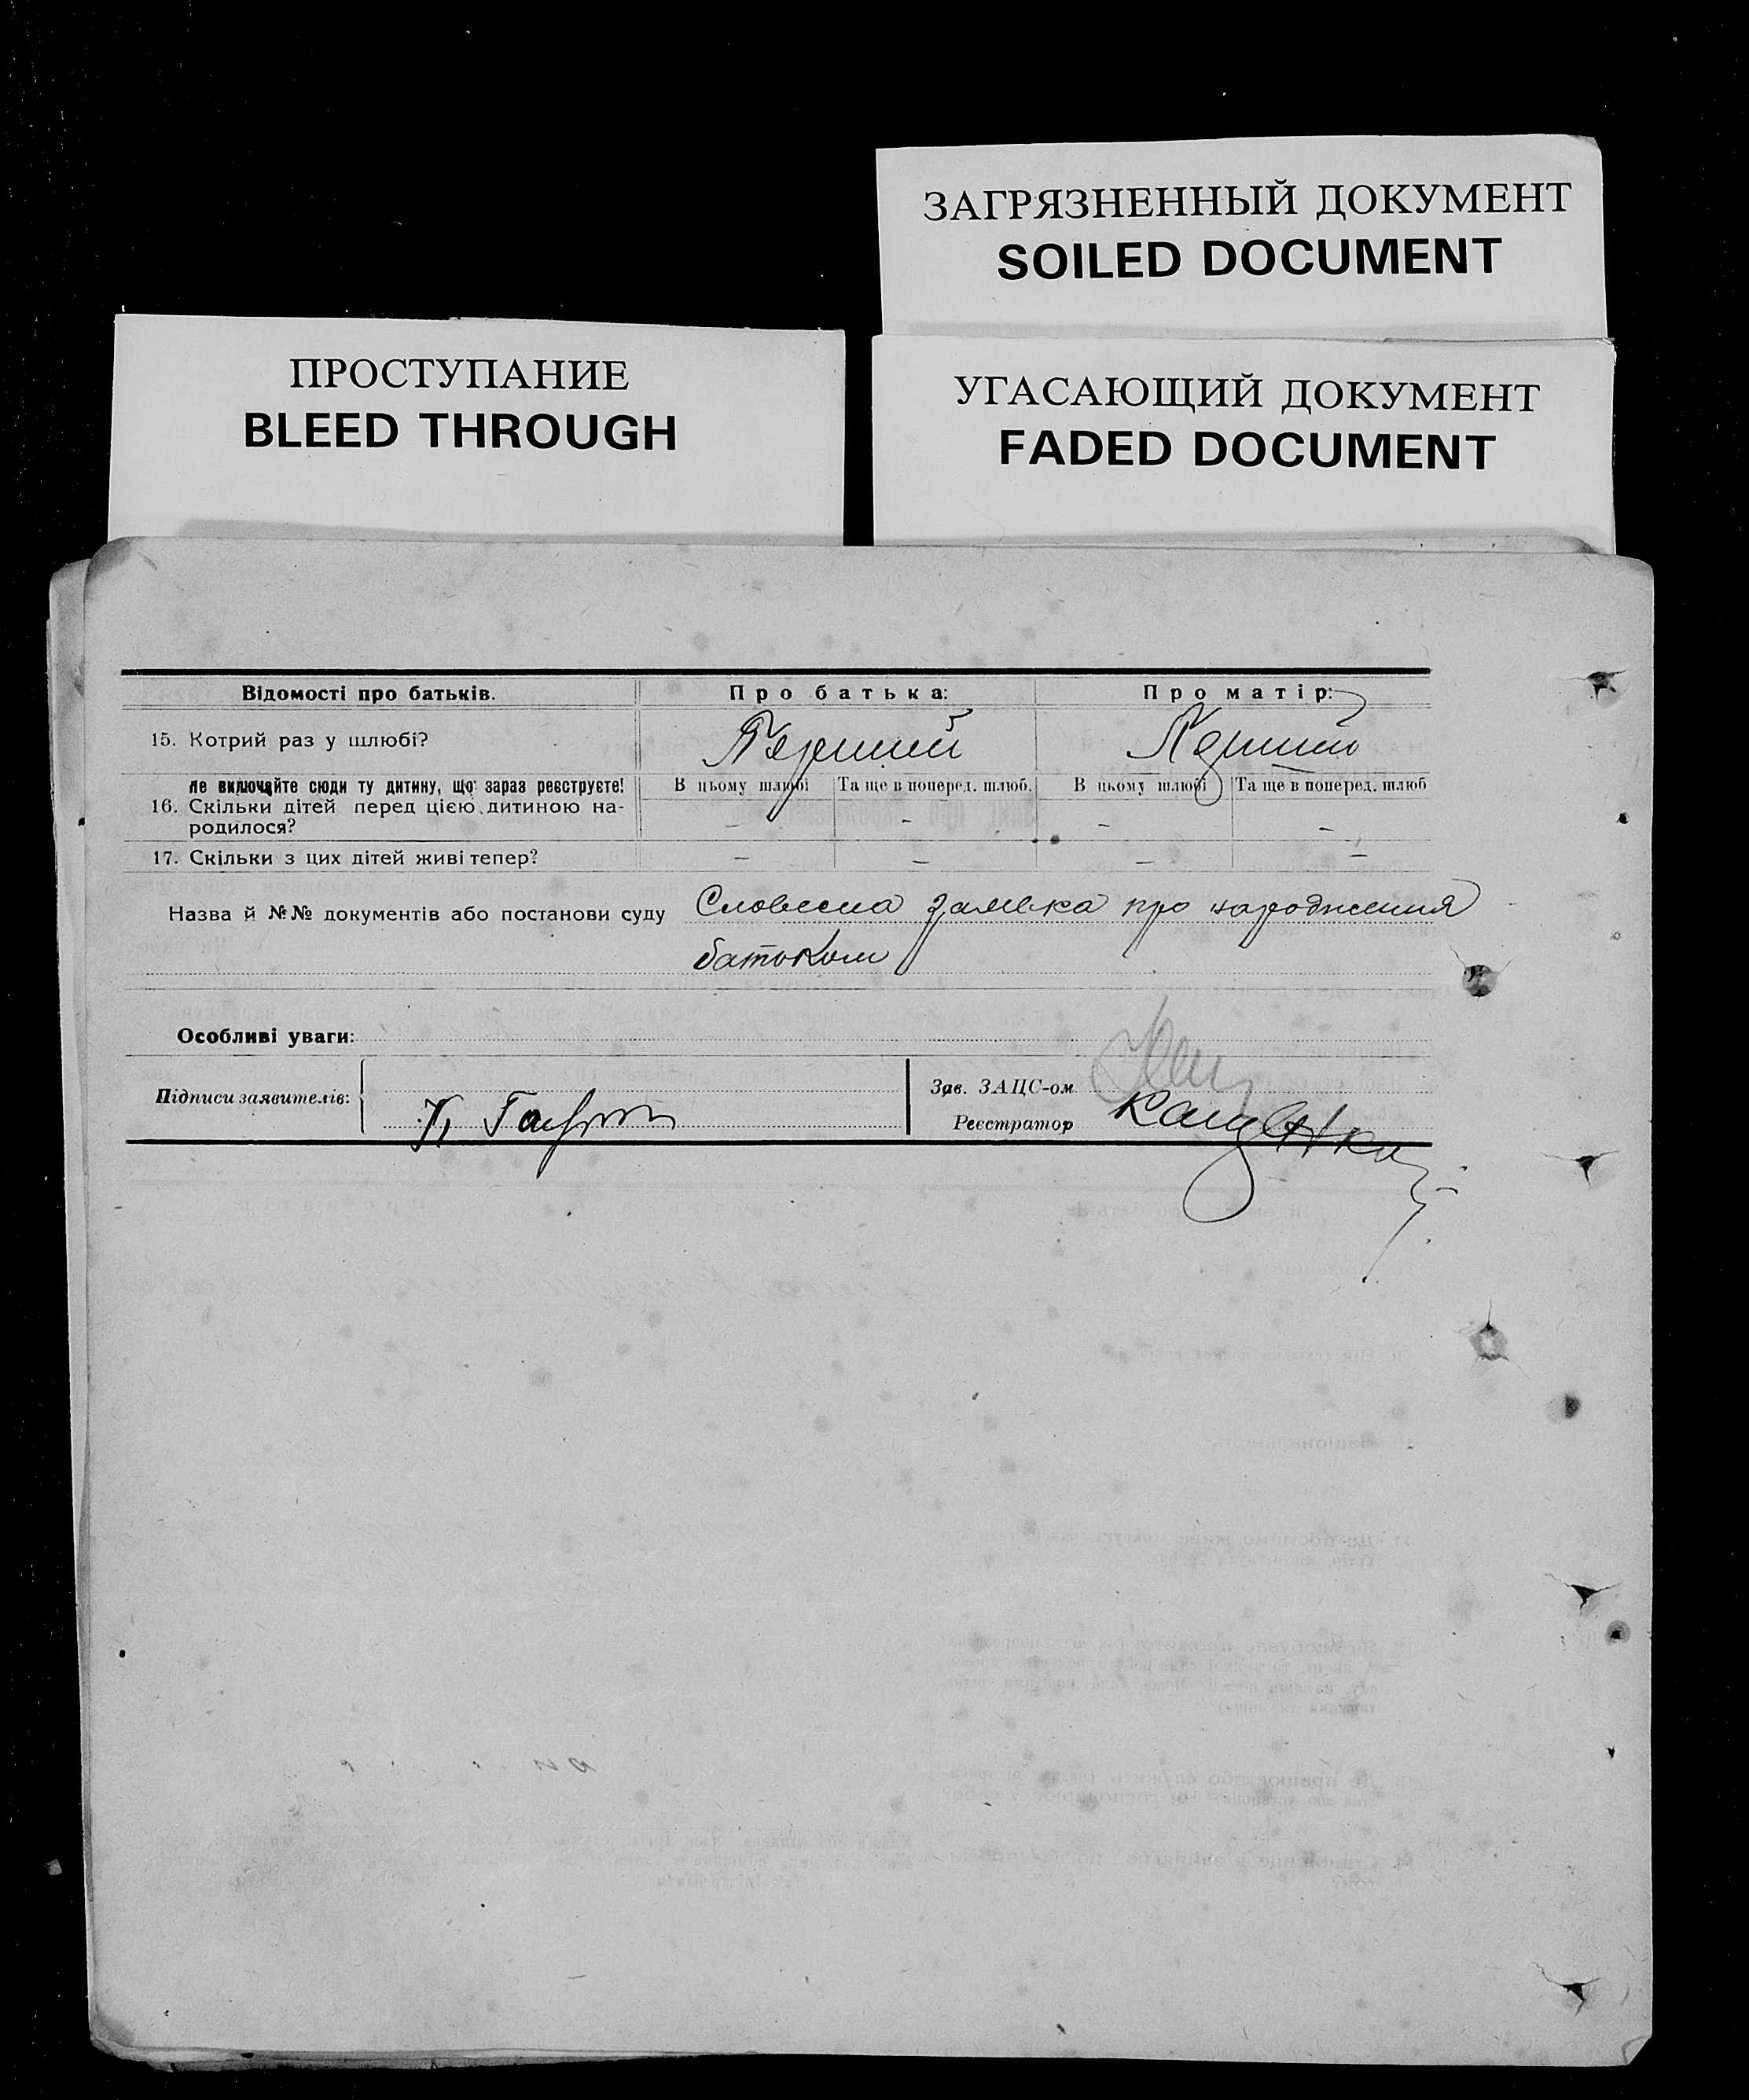 ЗАГРЯЗНЕННЫЙ ДОКУМЕНТ
SOILED DOCUMENT
ПРОСТУПАНИЕ
BLEED THROUGH
УГАСАЮЩИЙ ДОКУМЕНТ
FADED DOCUMENT
Відомості про батьків. Про батька: Про матір:
15. Котрий раз у шлюбі? Перший Перший
Не включайте сюди ту дитину, що зараз реєструєте! В цьому шлюбі Та ще в поперед. шлюб. В цьому шлюбі Та ще в поперед. шлюб
16. Скільки дітей перед цією дитиною на-
родилося? – – – –
17. Скільки з цих дітей живі тепер? – – – –
Назва й №№ документів або постанови суду Словесна заявка про народження
батьком
Особливі уваги:
Підписи заявителів:
Зав. ЗАЦС-ом
Реєстратор